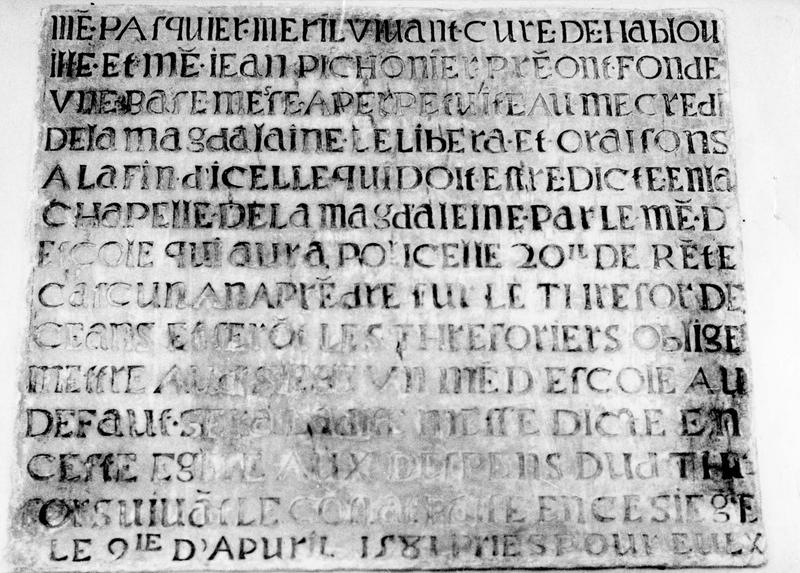 MĒ·PASQUIER·MERIL VIVANT·CURE·DE·HABLOU
ILLE·ET·MĒ·IEAN PICHŌNIER·PRĒ ONT·FONDE
VNE·BASE·MESE·A PERPETUITE AU MECREDI
DE LA MAGDALAINE·LE LIBERA·ET·ORAISONS
A LA FIN·D'ICELLE·QUI DOIT ESTRE·DICTE·EN LA
CHAPELLE·DE LA MAGDALEINE·PAR LE MĒ·D
ESCOLE QUI AURA POR ICELLE 20LL DE RĒTE
CASCUN AN A PRĒDRE SUR LE THRESOR DE
CEANS ET SERŌT LES THRESORIERS OBLIGE
METTRE VN MĒ D ESCOLE AU
DEFAUT· MESSE DICTE EN
CESTE EGLISE AUX DESPENS DUD THR
ORS UIUĀT LE EN CE SIEGE
LE 9IE D'APURIL 1581 PRIES POUR EULX